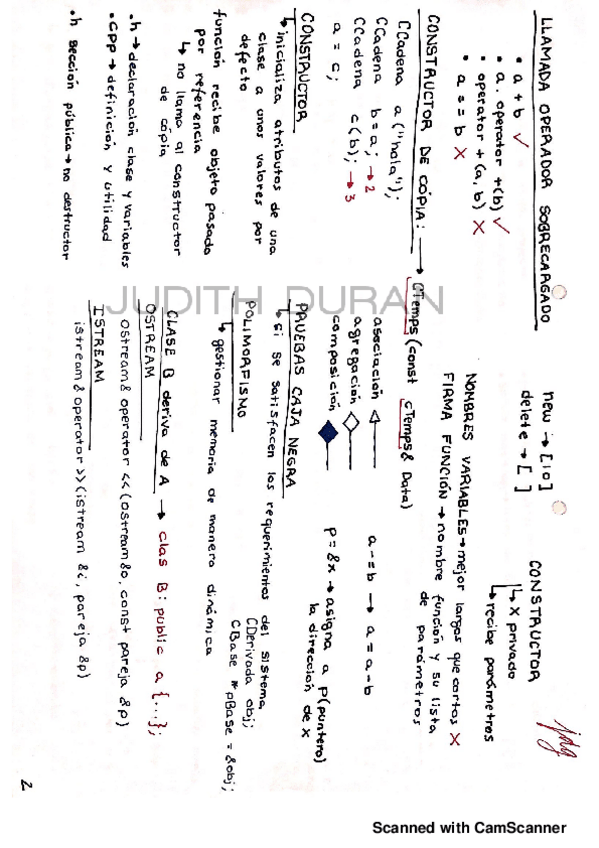 LLAMADA OPERADOR SOBRECARGADO
• a + b ✓
• a. operator +(b) ✓
• operator + (a, b) X
• a s = b X
CONSTRUCTOR DE CÓPIA: → CTemps (const cTemps& Data)
CCadena a ("hola");
CCadena b = a; → 2
CCadena c (b); → 3
a = c;
CONSTRUCTOR
↳ inicializa atributos de una
clase a unos valores por
defecto
función recibe objeto pasado
por referencia
↳ no llama al constructor
de cópia
.h → declaración clase y variables
.cpp → definición y utilidad
.h sección pública → no destructor
new → [10]
delete → [ ]
CONSTRUCTOR
↳ X privado
↳ recibe parámetros
NOMBRES VARIABLES → mejor largos que cortos X
FIRMA FUNCIÓN → nombre función y su lista
de parámetros
asociación
agregación
composición
a -= b → a = a - b
p = &x → asigna a p (puntero)
la dirección de x
PRUEBAS CAJA NEGRA
↳ si se satisfacen los requerimientos del sistema
POLIMORFISMO
↳ gestionar memoria de manera dinámica
CDerivada obj;
CBase * pBase = &obj;
CLASE B deriva de A → clas B: public a {...};
OSTREAM
ostream& operator << (ostream&o, const pareja &p)
ISTREAM
istream& operator >> (istream &i, pareja &p)
JUDITH DURAN
2
Scanned with CamScanner